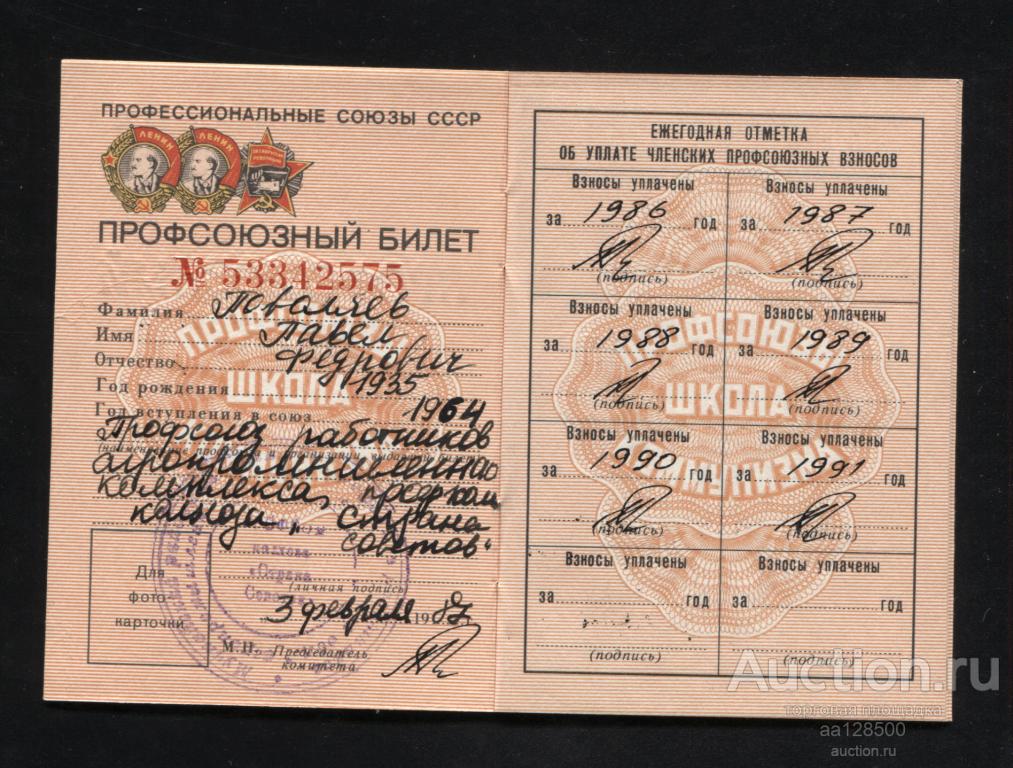 ПРОФЕССИОНАЛЬНЫЕ СОЮЗЫ СССР
ЛЕНИН ЛЕНИН
ПРОФСОЮЗНЫЙ БИЛЕТ
№ 53342575
Фамилия
Имя Павел
Отчество Федрович
Год рождения 1935
Год вступления в союз 1964
Профсоюз работников
агропромышленного
комплекса, профком
колхоза „Страна
Советов“
Для
фото-
карточки
колхоза
«Страна
(личная подпись)
3 февраля 1987
М.П. Председатель
комитета
ПРОФСОЮЗЫ
ШКОЛА
ЕЖЕГОДНАЯ ОТМЕТКА
ОБ УПЛАТЕ ЧЛЕНСКИХ ПРОФСОЮЗНЫХ ВЗНОСОВ
Взносы уплачены
за 1986 год
(подпись)
Взносы уплачены
за 1987 год
(подпись)
Взносы уплачены
за 1988 год
(подпись)
Взносы уплачены
за 1989 год
(подпись)
Взносы уплачены
за 1990 год
(подпись)
Взносы уплачены
за 1991 год
(подпись)
Взносы уплачены
за год
(подпись)
Взносы уплачены
за год
(подпись)
ПРОФСОЮЗЫ
ШКОЛА
КОММУНИЗМА
Auction.ru
торговая площадка
aa128500
auction.ru